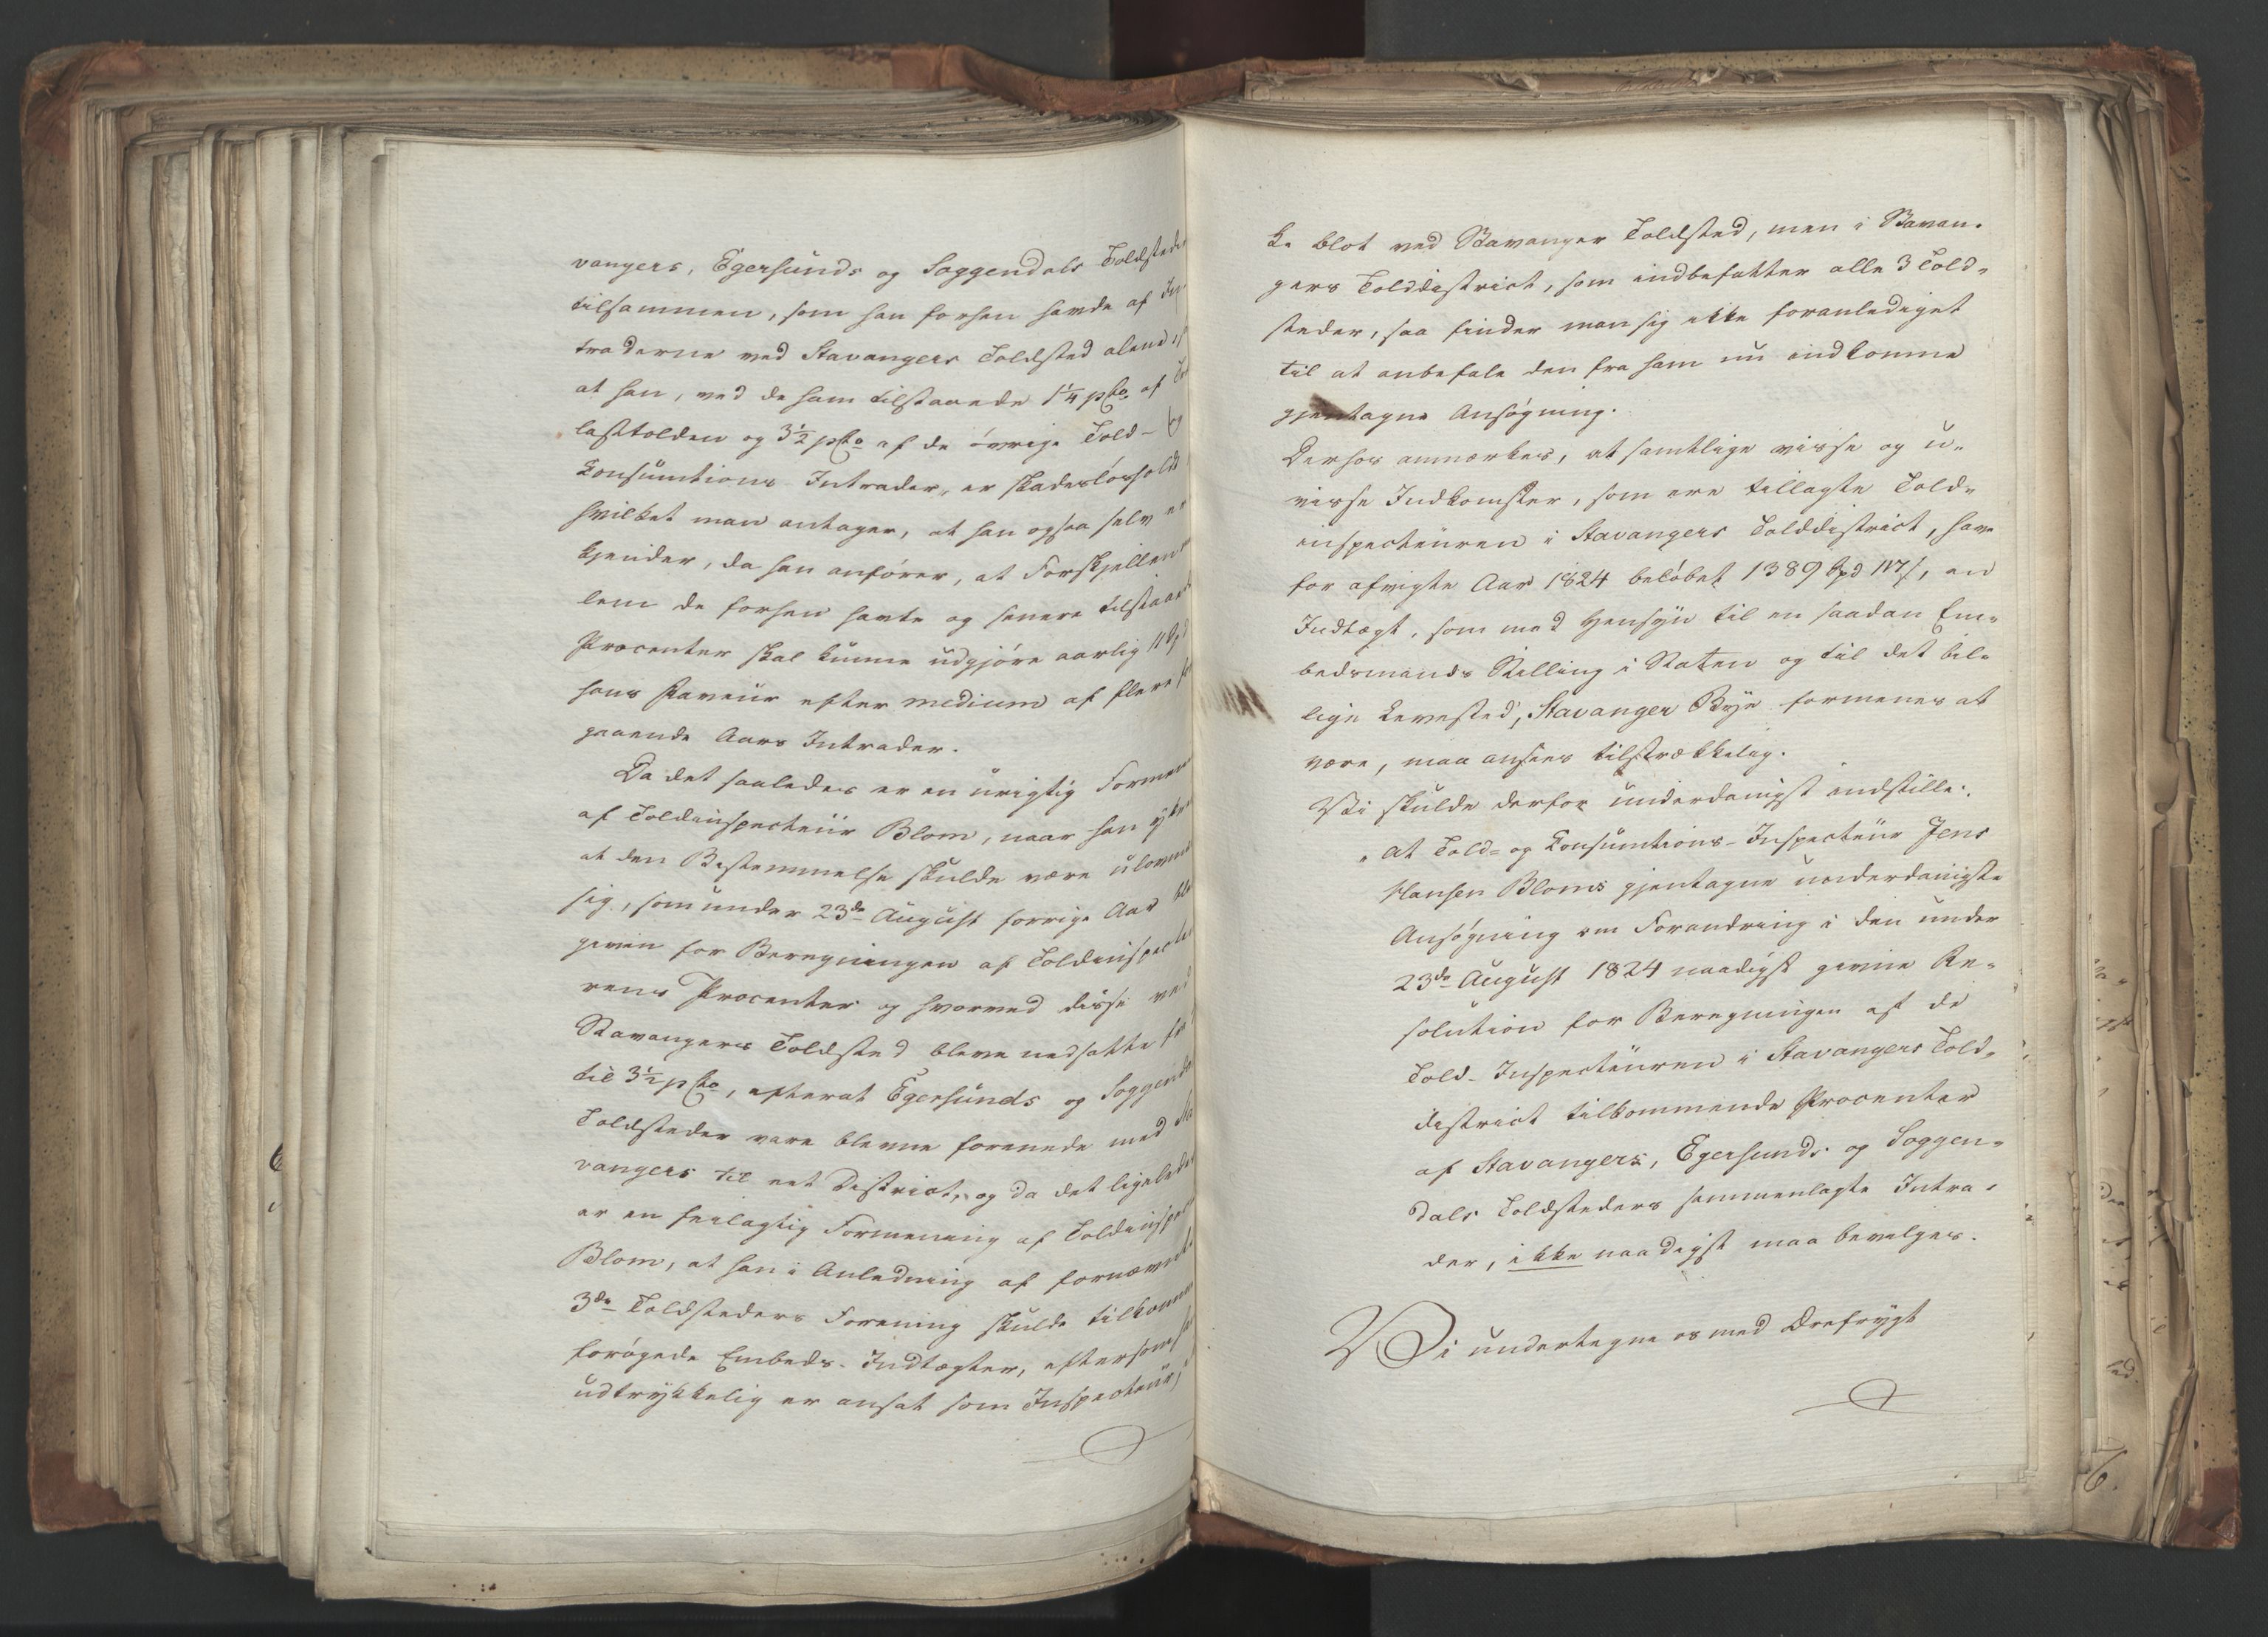 vangers, Egersunds og Soggendals Toldsteder
tilsammen, som han forhen havde af In-
traderne ved Stavangers Toldsted alene,
at han, ved de ham tilstaaede 1¼ pCto. af
lasttolden og 3½ pCto af de øvrige Told- og
Consumtions Intrader, er skadesløsholdt
hvilket man antager, at han ogsaa selv er
kjender, da han anfører, at Forskjellen
lem de forhen havte og senere tilstaaede
Procenter skal kunne udgjøre aarlig 11
hans Faveur efter medium af flere
gaaende Aars Intrader.
Da det saaledes er en urigtig Formening
af Toldinspecteur Blom, naar han
at den Bestemmelse skulde være ulovme
sig, som under 23de August forrige Aar blev
given for Beregningen af Toldinspecteu
rens Procenter og hvorved disse ved
Stavangers Toldsted bleve nedsatte fra
til 3½ pCto, efterat Egersunds og Soggendals
Toldsteder vare blevne forenede med Sta
vangers til eet District, og da det ligeledes
er en feilagtig Formening af Toldinspecteur
Blom, at han i Anledning af fornævnte
3de Toldsteders Forening skulde tilkomme
forøgede Embeds-Indtægter, eftersom han
udtrykkelig er ansat som Inspecteur,
ke blot ved Stavanger Toldsted, men i Stavan-
gers Tolddistrict, som indbefatter alle 3 Told-
steder, saa finder man sig ikke foranlediget
til at anbefale den fra ham nu indkomne
gjentagne Ansøgning.
Derhos anmærkes, at samtlige visse og u-
visse Indkomster, som ere tillagte Told-
inspecteuren i Stavangers Tolddistrict, have
for afvigte Aar 1824 beløbet 1389 Spd 117 s, en
Indtægt, som med Hensyn til en saadan Em-
bedsmands Stilling i Staten og til det bil-
lige Levested, Stavanger Bye formenes at
være, maa ansees tilstrækkelig.
Vi skulde derfor underdanigst indstille:
"At Told- og Consumtions-Inspecteur Jens
Hansen Bloms gjentagne underdanigste
Ansøgning om Forandring i den under
23de August 1824 naadigst givne Re-
solution for Beregningen af de
Told-Inspecteuren i Stavangers Told-
district tilkommende Procenter
af Stavangers, Egersunds og Soggen-
dals Toldsteders sammenlagte Intra-
der, ikke naadigst maa bevilges.
Vi undertegne os med Ærefrygt